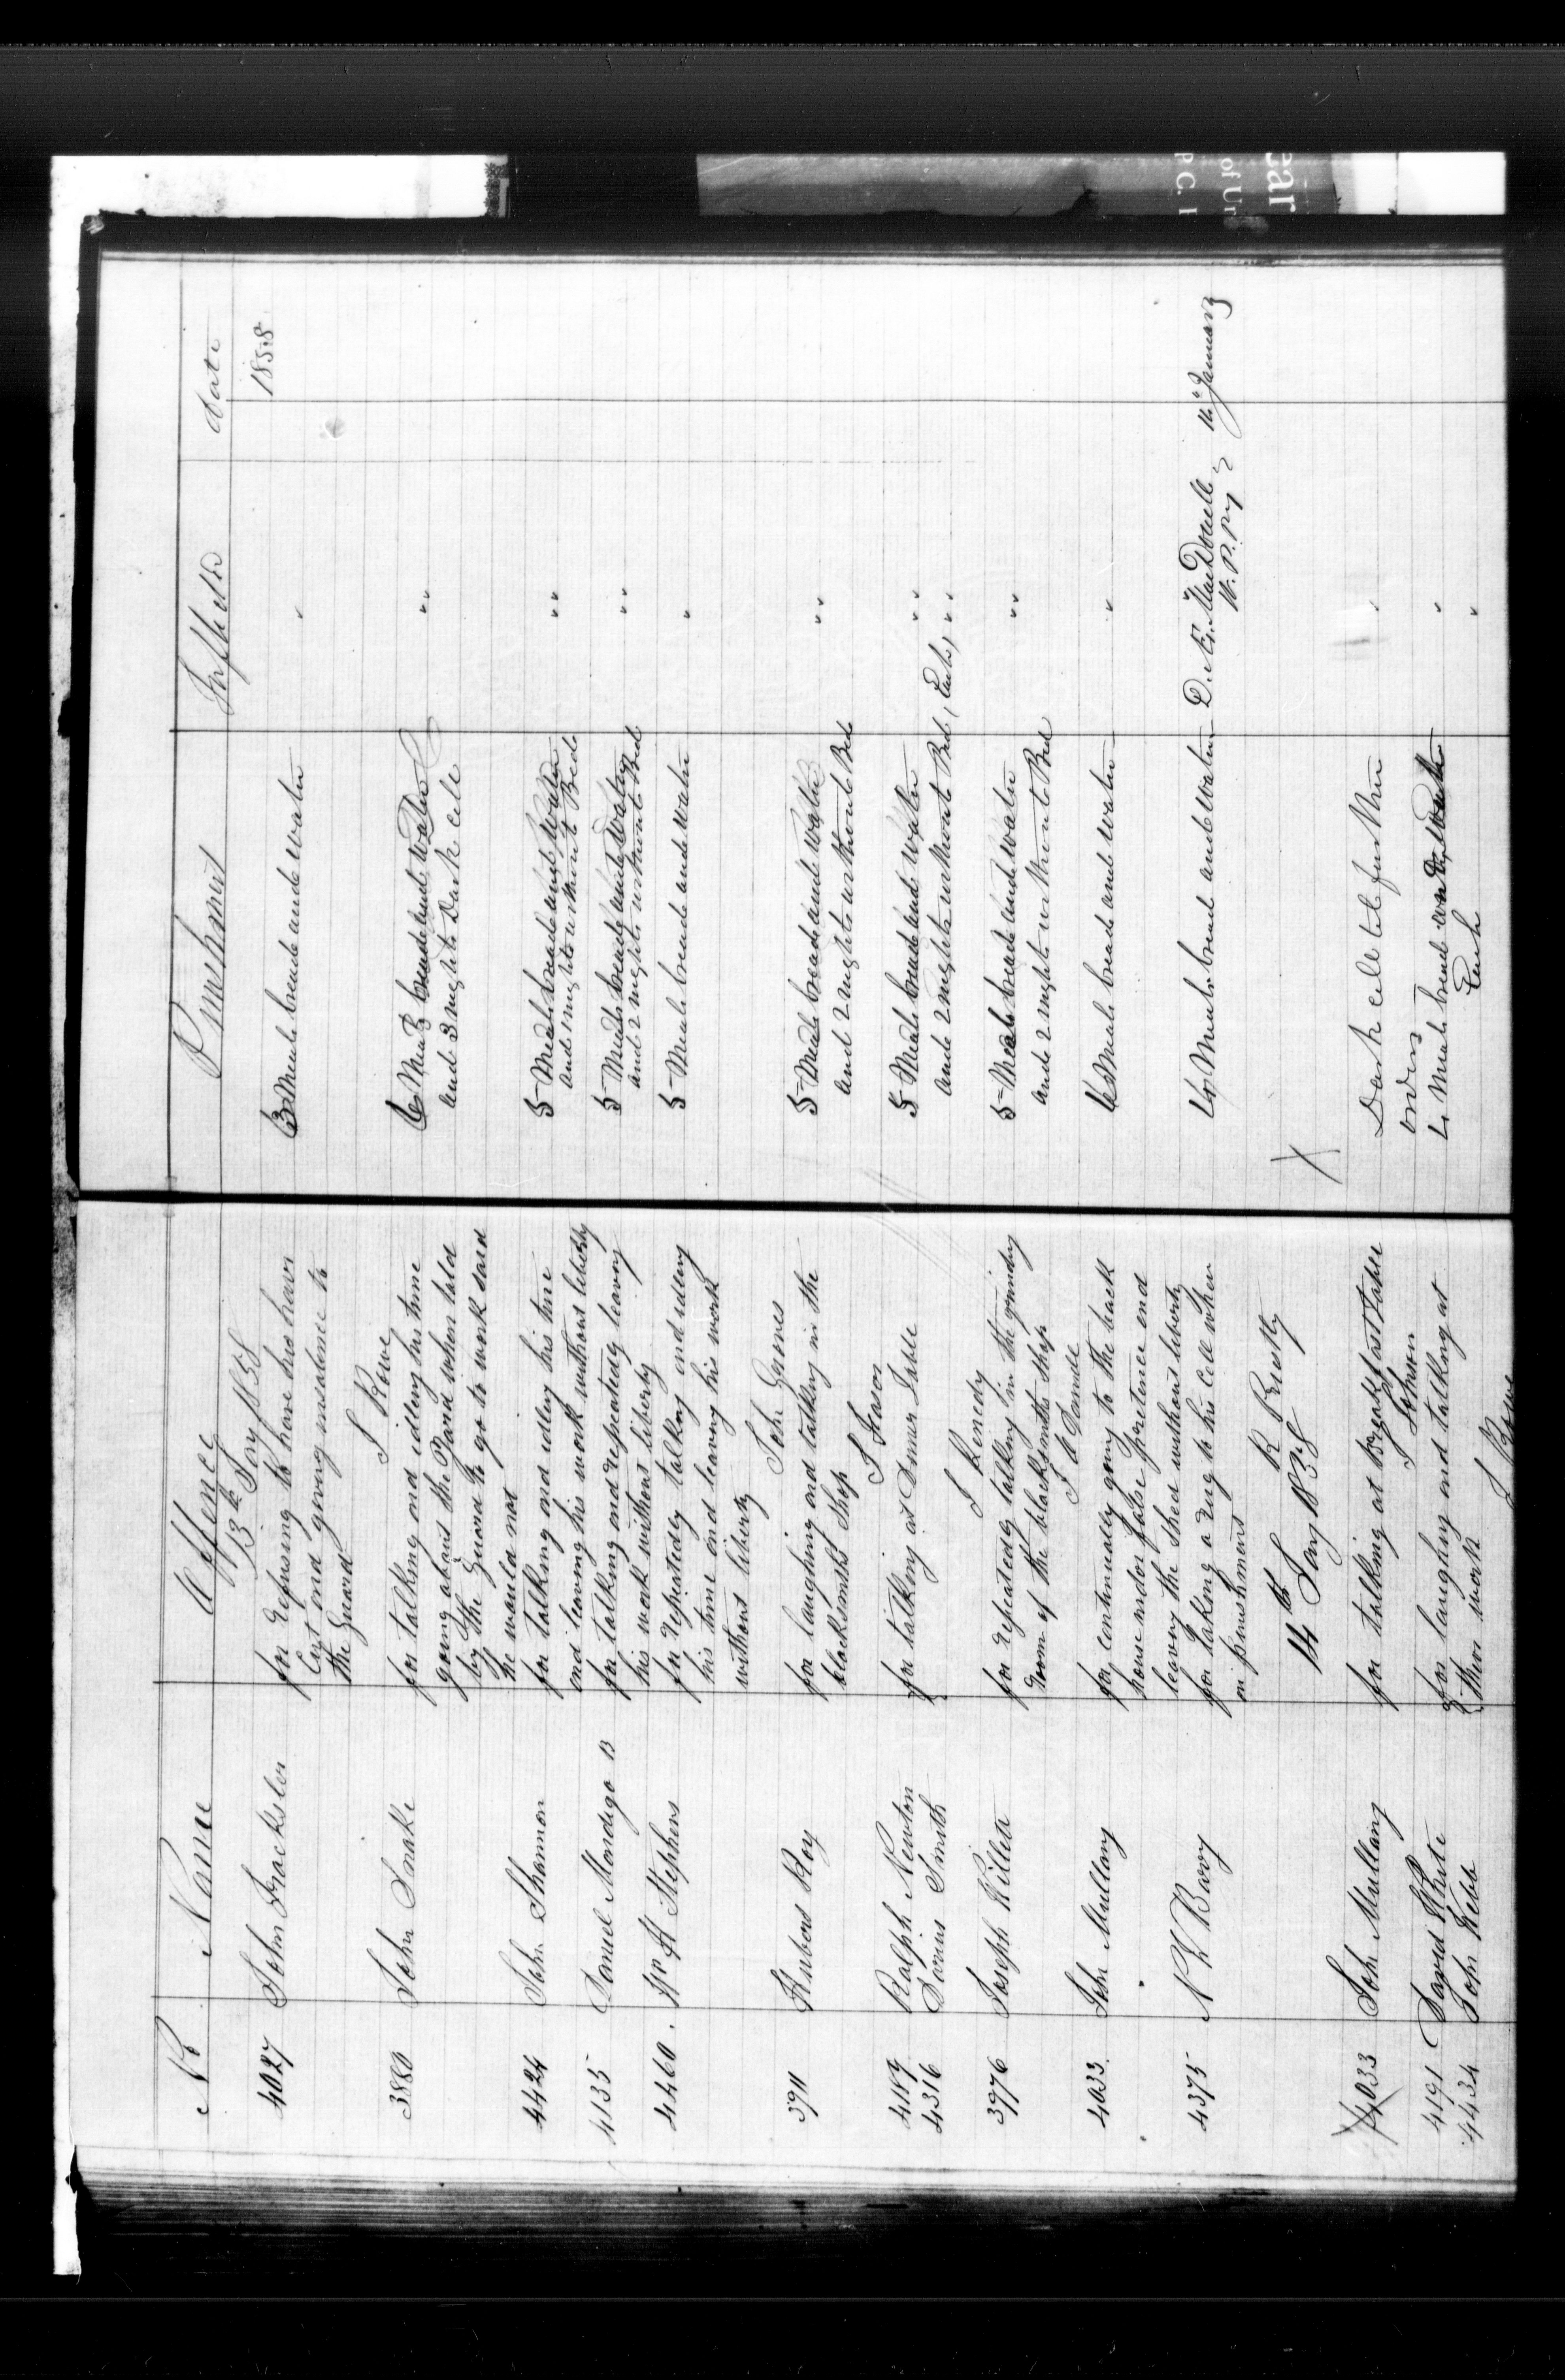 No Name Offence Punishment date
13th Jany 1858 1858
4027 John for refusing to have his hair 3 Meals bread and water "
Cut and giving insolence to
the Guard
J Rowe
3880 John Snake for talking and idling his time 6 Meals bread and water " "
going about the Yard when told and 3 nights Dark cell
by the Guard to go to work said
he would not
4424 John Shannon for talking and idling his time 5 Meals bread and water " "
and leaving his work without liberty and 1 nights without Bed
4135 Daniel Mondego B for talking and repeatedly leaving 5 Meals bread and water " "
his work without liberty and 2 nights without Bed
4460 Wm H Stephens for repeatedly talking and idling 5 Meals bread and water "
his time and leaving his work
without liberty
John
3911 Hubert Roy for laughing and talking in the 5 Meals bread and water " "
blacksmiths Shop and 2 nights without Bed
4189 Ralph Newton for talking at Dinner Table 5 Meals bread and water " "
4316 Darius Smith and 2 nights without Bed, Each, " "
J Kenedy
3976 Joseph Killett for repeatedly talking in the grinding 5 Meals bread and water " "
room of the blacksmiths Shop and 2 nights without Bed
4033 John Mullany for continually going to the back 6 Meals bread and water "
house under false pretence and
leaving the shed without liberty
4375 N W Barry for taking a rug to his Cell when 4 Meals bread and Water D. Æ. MacDonell 14 January
on punishment W. P. Py
R
14th Jany 1858 X
4033 John Mullany for talking at Breakfast Table Dark cell till further "
orders
4191 David White for laughing and talking at 4 Meals bread and Water "
4434 John Webb their work Each "
J Rowe
ear
of Ur
P.C.